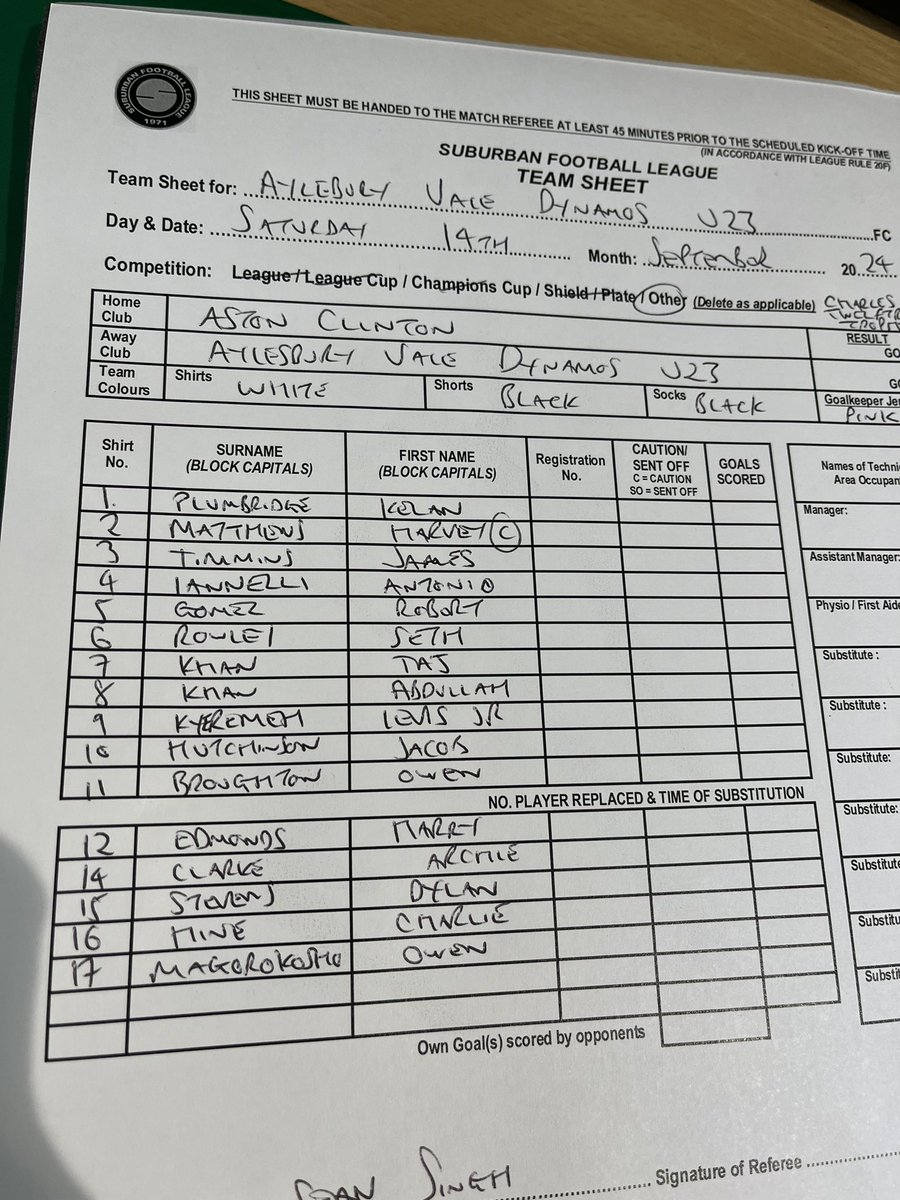 SUBURBAN FOOTBALL LEAGUE
1971
THIS SHEET MUST BE HANDED TO THE MATCH REFEREE AT LEAST 45 MINUTES PRIOR TO THE SCHEDULED KICK-OFF TIME
(IN ACCORDANCE WITH LEAGUE RULE 20F)
SUBURBAN FOOTBALL LEAGUE
TEAM SHEET
Team Sheet for: AYLEBURY VALE DYNAMOS U23 FC
Day & Date: SATURDAY 14TH Month: SEPTEMBER 20 24
Competition: League / League Cup / Champions Cup / Shield / Plate / Other (Delete as applicable) CHARLES
Home Club ASTON CLINTON RESULT
Away Club AYLESBURY VALE DYNAMOS U23 GO
Team Colours Shirts WHITE Shorts BLACK Socks BLACK Goalkeeper Jer PINK
Shirt No. SURNAME (BLOCK CAPITALS) FIRST NAME (BLOCK CAPITALS) Registration No. CAUTION/ SENT OFF C = CAUTION SO = SENT OFF GOALS SCORED Names of Techni Area Occupan
1. PLUMBRIDGE KELAN
Manager:
2 MATTHEWS HARVEY (C)
3 TIMMINS JAMES
Assistant Manager:
4 IANNELLI ANTONIO
5 GOMEZ ROBERT
Physio / First Aide
6 ROWLEY SETH
7 KHAN TAJ
Substitute :
8 KHAN ABDULLAH
9 KYEREMEH LEWIS JR
Substitute :
10 HUTCHINSON JACOB
Substitute:
11 BROUGHTON OWEN
NO. PLAYER REPLACED & TIME OF SUBSTITUTION
Substitute:
12 EDMONDS HARRY
14 CLARKE ARCHIE
Substitute
15 STEVENS DYLAN
16 HINE CHARLIE
Substitu
17 MAGOROKOSHO OWEN
Substit
Own Goal(s) scored by opponents
SINGH Signature of Referee